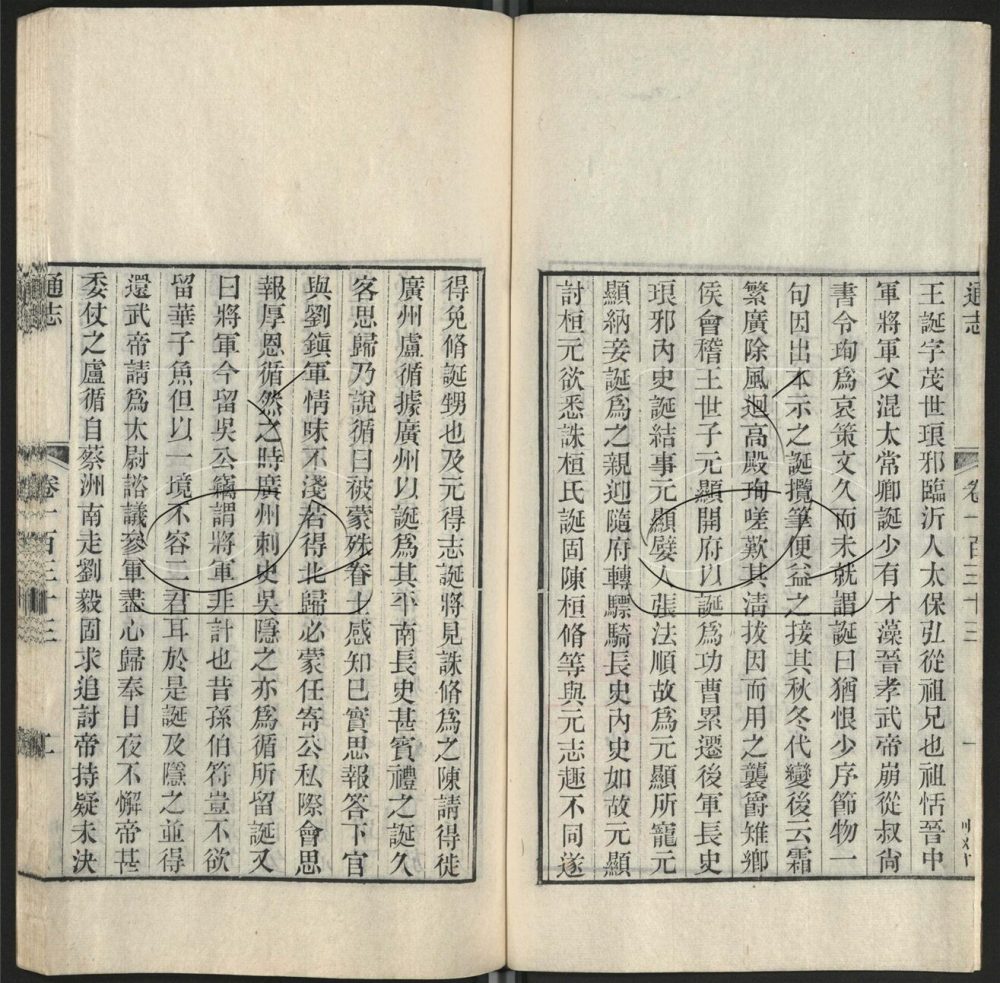 通志
卷一百三十三
一
王誕字茂世琅邪臨沂人太保弘從祖兄也祖恬晉中
軍將軍父混太常卿誕少有才藻晉孝武帝崩從叔尚
書令珣為哀策文久而未就謂誕曰猶恨少序節物一
句因出本示之誕攬筆便益之接其秋冬代變後云霜
繁廣除風迴高殿珣嗟歎其清拔因而用之襲爵雉鄉
侯會稽王世子元顯開府以誕為功曹累遷後軍長史
琅邪內史誕結事元顯嬖人張法順故為元顯所寵元
顯納妾誕為之親迎隨府轉驃騎長史內史如故元顯
討桓元欲悉誅桓氏誕固陳桓脩等與元志趣不同遂
得免脩誕甥也及元得志誕將見誅脩為之陳請得徙
廣州盧循據廣州以誕為其平南長史甚賓禮之誕久
客思歸乃說循曰被蒙殊眷士感知已實思報答下官
與劉鎮軍情味不淺若得北歸必蒙任寄公私際會思
報厚恩循然之時廣州刺史吳隱之亦為循所留誕又
曰將軍今留吳公竊謂將軍非計也昔孫伯符豈不欲
留華子魚但以一境不容二君耳於是誕及隱之並得
還武帝請為太尉諮議參軍盡心歸奉日夜不懈帝甚
委仗之盧循自蔡洲南走劉毅固求追討帝持疑未決
通志
卷一百三十三
二